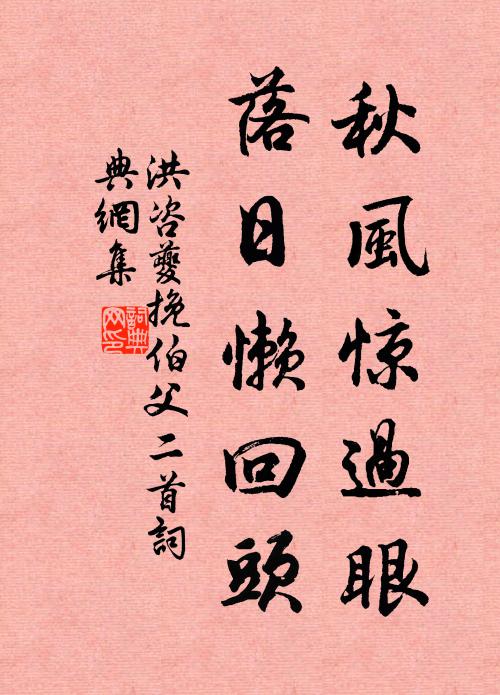 秋風惊過眼
落日懶回頭
洪咨夔挽伯父二首詞
典網集
詞典
网印